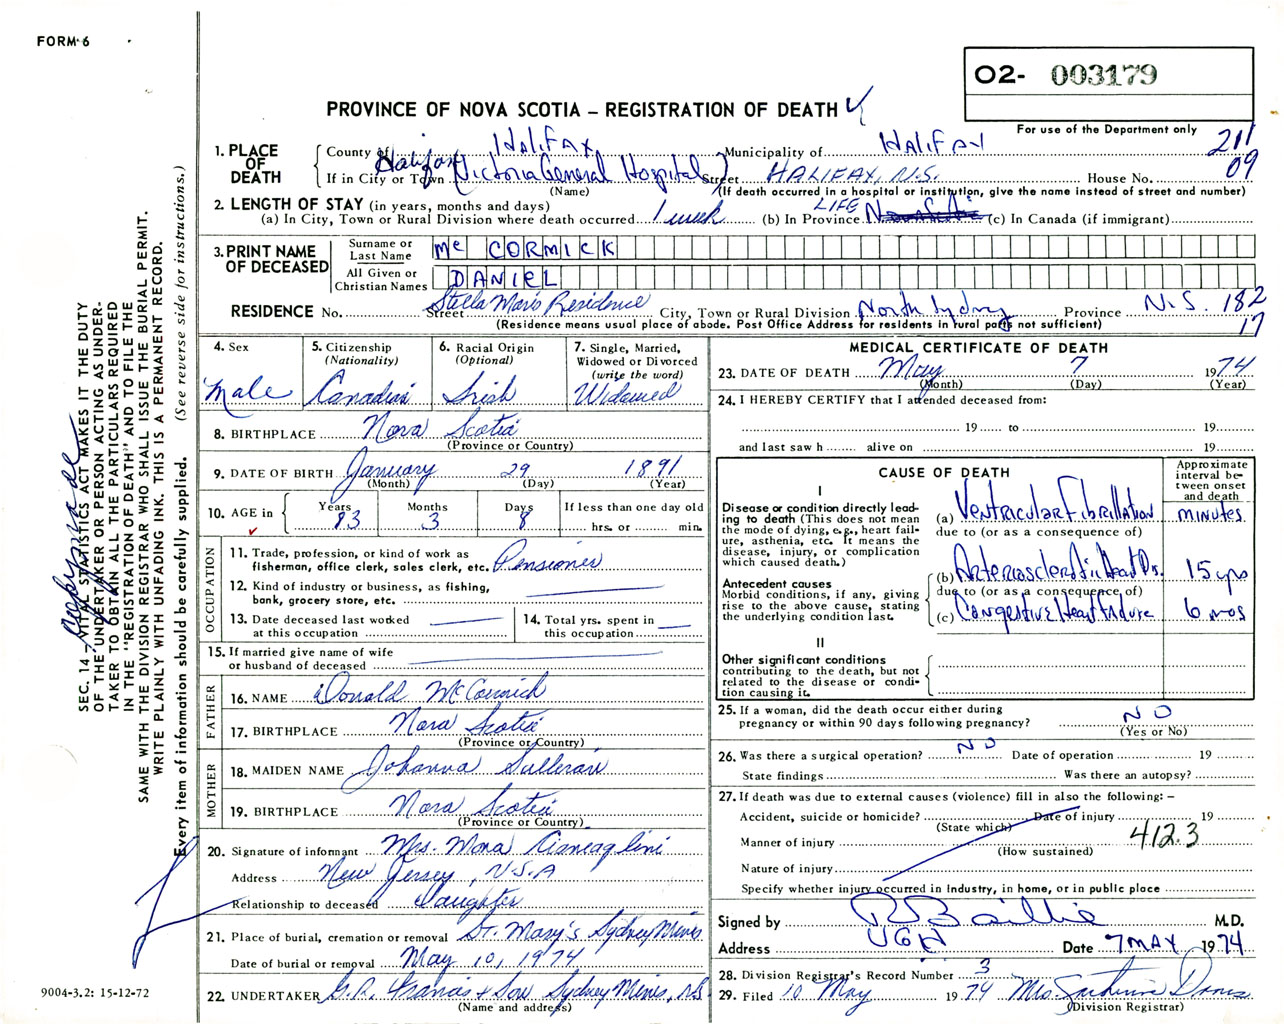 FORM 6
O2- 003179
PROVINCE OF NOVA SCOTIA – REGISTRATION OF DEATH
For use of the Department only
211
09
1. PLACE OF DEATH
County of Halifax Municipality of Halifax
If in City or Town Halifax (Victoria General Hospital) Street HALIFAX, N.S. House No.
(Name) (If death occurred in a hospital or institution, give the name instead of street and number)
2. LENGTH OF STAY (in years, months and days)
(a) In City, Town or Rural Division where death occurred 1 week (b) In Province LIFE (c) In Canada (if immigrant)
3. PRINT NAME OF DECEASED
Surname or Last Name Mc CORMICK
All Given or Christian Names DANIEL
RESIDENCE No. Street Stella Maris Residence City, Town or Rural Division North Sydney Province N.S. 182
17
(Residence means usual place of abode. Post Office Address for residents in rural parts not sufficient)
4. Sex
Male
5. Citizenship (Nationality)
Canadian
6. Racial Origin (Optional)
Irish
7. Single, Married, Widowed or Divorced (write the word)
Widowed
8. BIRTHPLACE Nova Scotia
(Province or Country)
9. DATE OF BIRTH January 29 1891
(Month) (Day) (Year)
10. AGE in
Years 83 Months 3 Days 8 If less than one day old
hrs. or min.
OCCUPATION
11. Trade, profession, or kind of work as fisherman, office clerk, sales clerk, etc. Pensioner
12. Kind of industry or business, as fishing, bank, grocery store, etc.
13. Date deceased last worked at this occupation
14. Total yrs. spent in this occupation
15. If married give name of wife or husband of deceased
FATHER
16. NAME Donald McCormick
17. BIRTHPLACE Nova Scotia
(Province or Country)
MOTHER
18. MAIDEN NAME Johanna Sullivan
19. BIRTHPLACE Nova Scotia
(Province or Country)
20. Signature of informant Mrs. Mona
Address New Jersey, U.S.A
Relationship to deceased Daughter
21. Place of burial, cremation or removal St. Mary's Sydney Mines
Date of burial or removal May 10, 1974
22. UNDERTAKER G.R. Francis & Son Sydney Mines, NS
(Name and address)
MEDICAL CERTIFICATE OF DEATH
23. DATE OF DEATH May 7 1974
(Month) (Day) (Year)
24. I HEREBY CERTIFY that I attended deceased from:
19 to 19
and last saw h alive on 19
CAUSE OF DEATH
Approximate interval between onset and death
I
Disease or condition directly leading to death (This does not mean the mode of dying, e.g., heart failure, asthenia, etc. It means the disease, injury, or complication which caused death.)
(a) Ventricular Fibrillation minutes
due to (or as a consequence of)
Antecedent causes
Morbid conditions, if any, giving rise to the above cause, stating the underlying condition last.
(b) Arteriosclerotic Heart Dis. 15 yrs
due to (or as a consequence of)
(c) Congestive Heart Failure 6 mos
II
Other significant conditions contributing to the death, but not related to the disease or condition causing it.
25. If a woman, did the death occur either during pregnancy or within 90 days following pregnancy? NO
(Yes or No)
26. Was there a surgical operation? NO Date of operation 19
State findings Was there an autopsy?
27. If death was due to external causes (violence) fill in also the following: –
Accident, suicide or homicide? Date of injury 19
(State which)
Manner of injury 412.3
(How sustained)
Nature of injury
Specify whether injury occurred in Industry, in home, or in public place
Signed by R Baillie M.D.
Address VGH Date 7 MAY 1974
28. Division Registrar's Record Number 3
29. Filed 10 May 1974 Mrs. Davis
(Division Registrar)
SEC. 14 – VITAL STATISTICS ACT MAKES IT THE DUTY
OF THE UNDERTAKER OR PERSON ACTING AS UNDER-
TAKER TO OBTAIN ALL THE PARTICULARS REQUIRED
IN THE "REGISTRATION OF DEATH" AND TO FILE THE
SAME WITH THE DIVISION REGISTRAR WHO SHALL ISSUE THE BURIAL PERMIT.
WRITE PLAINLY WITH UNFADING INK. THIS IS A PERMANENT RECORD.
Every item of information should be carefully supplied. (See reverse side for instructions.)
9004-3.2: 15-12-72